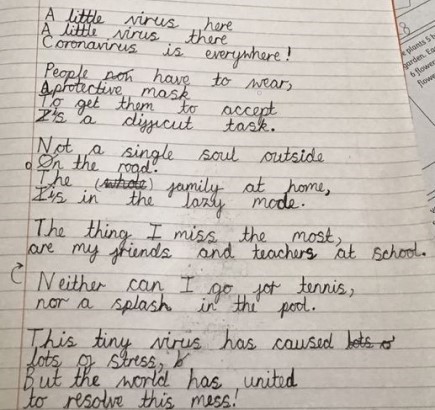 A little virus here
A little virus there
Coronavirus is everywhere!
People have to wear,
A protective mask
To get them to accept
It's a difficut task.
Not a single soul outside
On the road.
The (whole) family at home,
Is in the lazy mode.
The thing I miss the most,
are my friends and teachers at school.
Neither can I go for tennis,
nor a splash in the pool.
This tiny virus has caused
lots of stress,
But the world has united
to resolve this mess!
8
plants 5 b
garden. Ea
6 flower
flowe